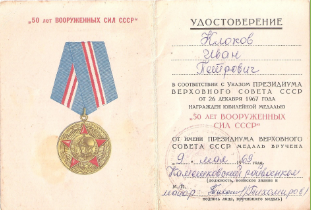 "50 лет ВООРУЖЕННЫХ СИЛ СССР"
УДОСТОВЕРЕНИЕ
Клоков
Иван
Петрович
В СООТВЕТСТВИИ С УКАЗОМ ПРЕЗИДИУМА
ВЕРХОВНОГО СОВЕТА СССР
ОТ 26 ДЕКАБРЯ 1967 ГОДА
НАГРАЖДЕН ЮБИЛЕЙНОЙ МЕДАЛЬЮ
"50 ЛЕТ ВООРУЖЕННЫХ
СИЛ СССР"
ОТ ИМЕНИ ПРЕЗИДИУМА ВЕРХОВНОГО
СОВЕТА СССР МЕДАЛЬ ВРУЧЕНА
9. мая 1969 года
райвоенком
М.П.
майор (Тихомиров)